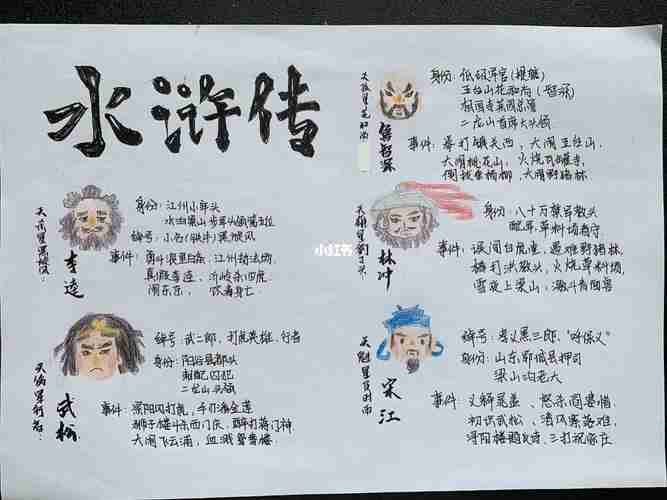 水浒传
天杀星黑旋风:
李逵
身份: 江州小牢头
水泊梁山步军头领第五位
绰号: 小名(铁牛) 黑旋风
事件: 斗浪里白条, 江州劫法场
真假李逵, 沂岭杀四虎
闹东京, 饮毒身亡
天伤星行者:
武松
绰号: 武二郎, 打虎英雄, 行者
身份: 阳谷县都头
刺配囚犯
二龙山头领
事件: 景阳冈打虎, 手刃潘金莲
狮子楼斗杀西门庆, 醉打蒋门神
大闹飞云浦, 血溅鸳鸯楼
天孤星花和尚
鲁智深
身份: 低级军官(提辖)
五台山花和尚(智深)
相国寺菜园
二龙山首席大头领
事件: 拳打镇关西, 大闹五台山,
大闹桃花山, 火烧瓦罐寺
倒拔垂杨柳, 大闹野猪林
天雄星豹子头
林冲
身份: 八十万禁军教头
草料场看守
事件: 误闯白虎堂, 遇难野猪林
棒打洪教头, 火烧草料场,
雪夜上梁山,
天魁星及时雨
宋江
绰号: 孝义黑三郎, "呼保义"
身份: 山东郓城县押司
梁山的老大
事件: 义释晁盖、怒杀阎婆惜,
初识武松, 清风寨落难,
浔阳楼题反诗, 三打祝家庄
小红书